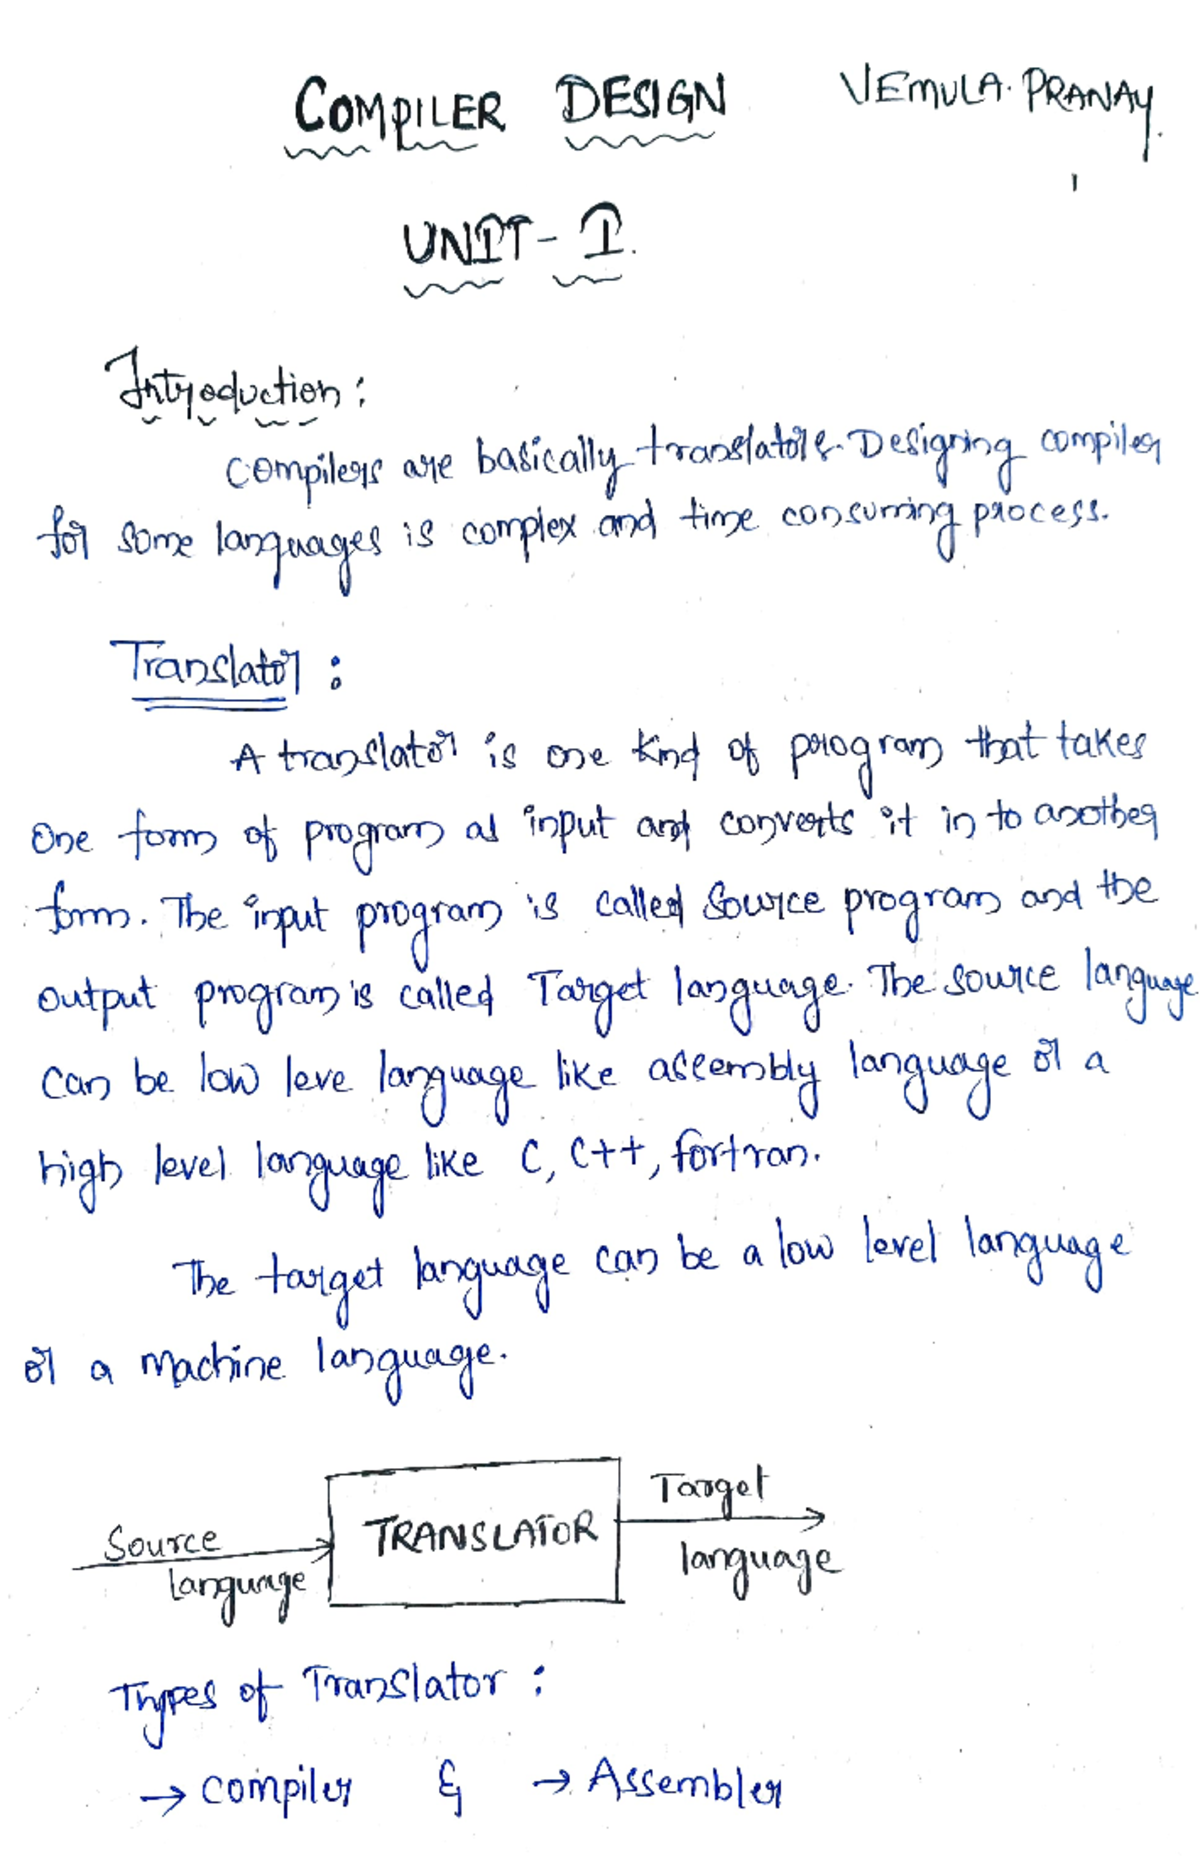 COMPILER DESIGN VEMULA. PRANAY.
1
UNIT - I.
Introduction:
Compilers are basically translators. Designing compiler
for some languages is complex and time consuming process.
Translator:
A translator is one kind of program that takes
one form of program as input and converts it in to another
form. The input program is called source program and the
output program is called Target language. The source language
can be low leve language like assembly language or a
high level language like C, C++, fortran.
The target language can be a low level language
or a machine language.
Source
language
TRANSLATOR
Target
language
Types of Translator:
→ compiler & → Assembler